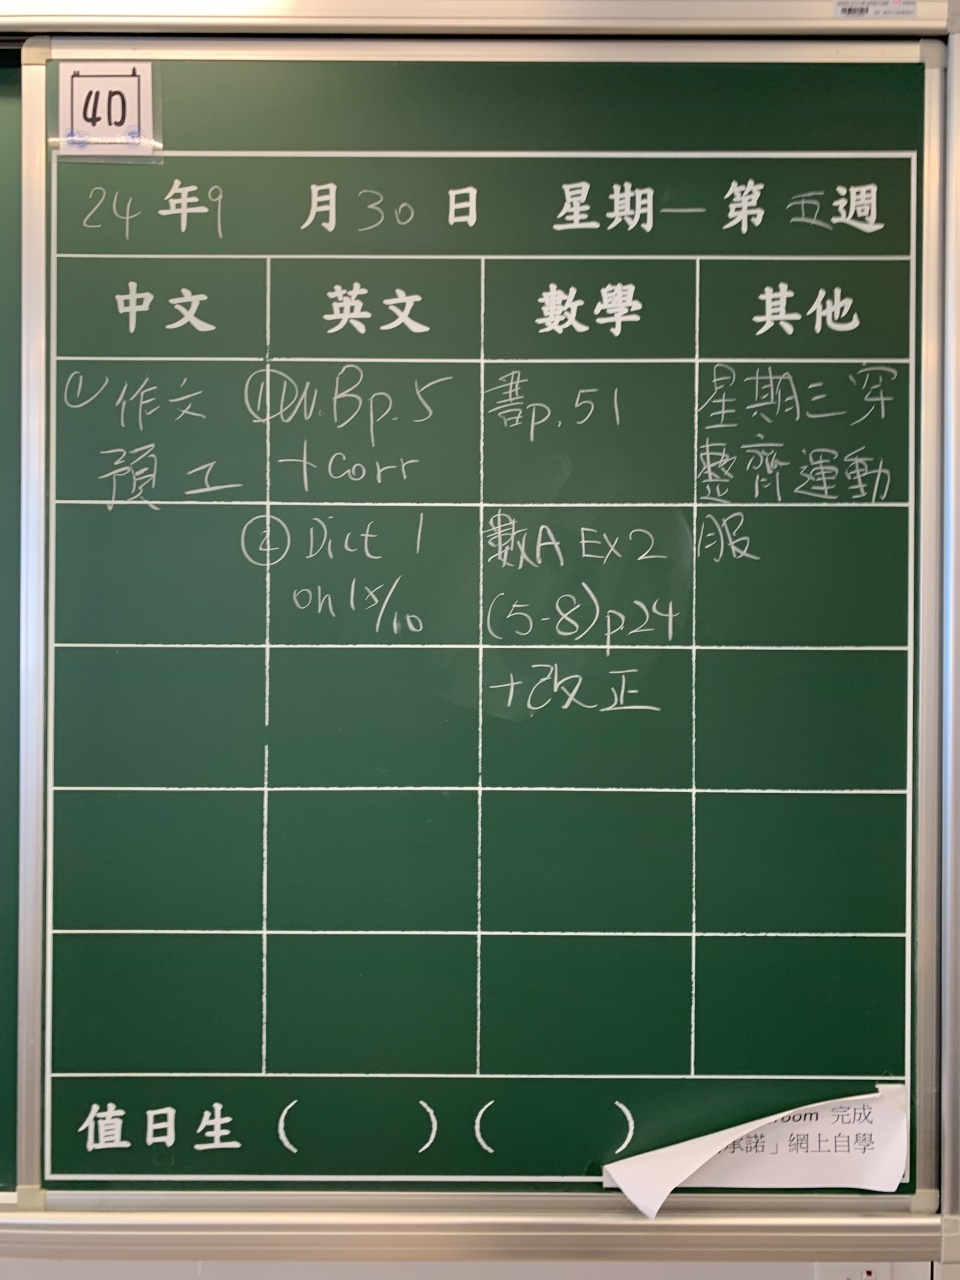 4D
24年9月30日 星期一第五週
中文 英文 數學 其他
① 作文
預工
① W.B p.5
+ corr
② Dict 1
on 15/10
書p.51
數A Ex 2
(5-8) p24
+改正
星期三穿
整齊運動
服
值日生 ( ) ( )
room 完成
承諾」網上自學